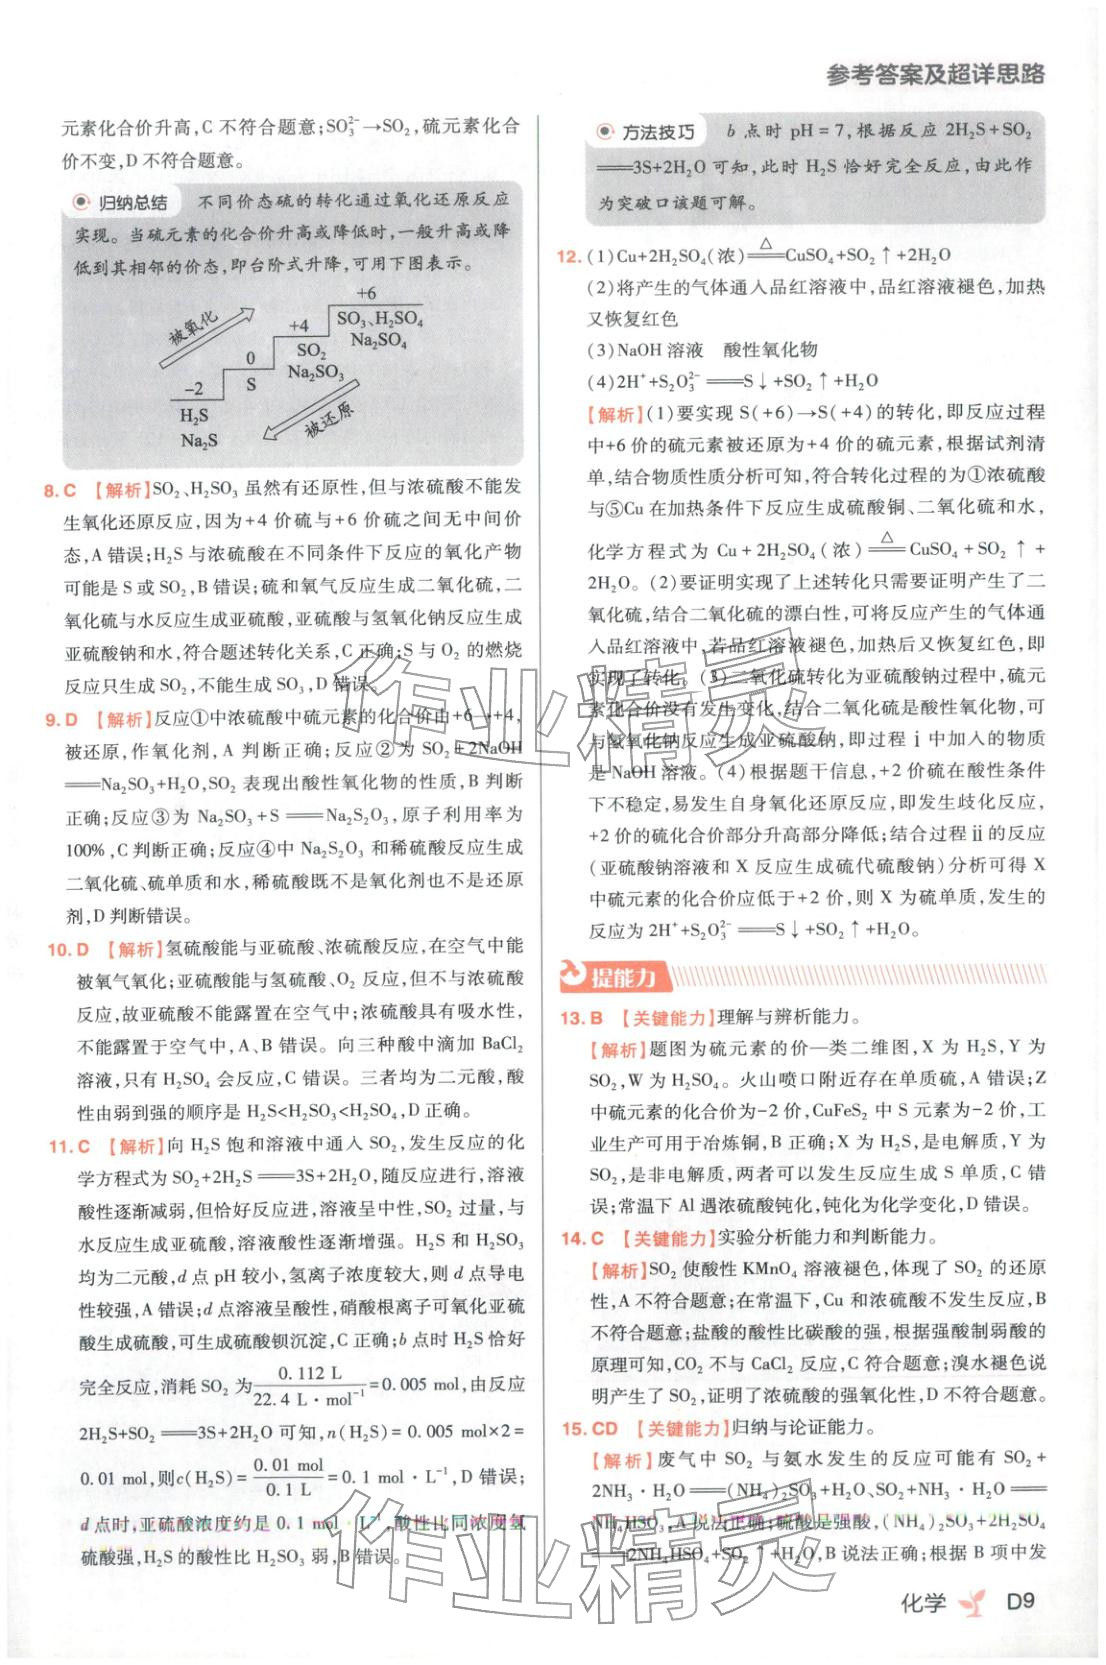 参考答案及超详思路
元素化合价升高,C 不符合题意;SO₃²⁻→SO₂,硫元素化合
价不变,D 不符合题意。
归纳总结 不同价态硫的转化通过氧化还原反应
实现。当硫元素的化合价升高或降低时,一般升高或降
低到其相邻的价态,即台阶式升降,可用下图表示。
被氧化
+6
SO₃、H₂SO₄
Na₂SO₄
+4
SO₂
Na₂SO₃
0
S
-2
H₂S
Na₂S
被还原
8. C 【解析】SO₂、H₂SO₃ 虽然有还原性,但与浓硫酸不能发
生氧化还原反应,因为+4 价硫与+6 价硫之间无中间价
态,A 错误;H₂S 与浓硫酸在不同条件下反应的氧化产物
可能是 S 或 SO₂,B 错误;硫和氧气反应生成二氧化硫,二
氧化硫与水反应生成亚硫酸,亚硫酸与氢氧化钠反应生成
亚硫酸钠和水,符合题述转化关系,C 正确;S 与 O₂ 的燃烧
反应只生成 SO₂,不能生成 SO₃,D 错误。
9. D 【解析】反应①中浓硫酸中硫元素的化合价由+6→+4,
被还原,作氧化剂,A 判断正确;反应②为 SO₂+2NaOH
══Na₂SO₃+H₂O,SO₂ 表现出酸性氧化物的性质,B 判断
正确;反应③为 Na₂SO₃+S══Na₂S₂O₃,原子利用率为
100%,C 判断正确;反应④中 Na₂S₂O₃ 和稀硫酸反应生成
二氧化硫、硫单质和水,稀硫酸既不是氧化剂也不是还原
剂,D 判断错误。
10. D 【解析】氢硫酸能与亚硫酸、浓硫酸反应,在空气中能
被氧气氧化;亚硫酸能与氢硫酸、O₂ 反应,但不与浓硫酸
反应,故亚硫酸不能露置在空气中;浓硫酸具有吸水性,
不能露置于空气中,A、B 错误。向三种酸中滴加 BaCl₂
溶液,只有 H₂SO₄ 会反应,C 错误。三者均为二元酸,酸
性由弱到强的顺序是 H₂S<H₂SO₃<H₂SO₄,D 正确。
11. C 【解析】向 H₂S 饱和溶液中通入 SO₂,发生反应的化
学方程式为 SO₂+2H₂S══3S+2H₂O,随反应进行,溶液
酸性逐渐减弱,但恰好反应进,溶液呈中性,SO₂ 过量,与
水反应生成亚硫酸,溶液酸性逐渐增强。H₂S 和 H₂SO₃
均为二元酸,d 点 pH 较小,氢离子浓度较大,则 d 点导电
性较强,A 错误;d 点溶液呈酸性,硝酸根离子可氧化亚硫
酸生成硫酸,可生成硫酸钡沉淀,C 正确;b 点时 H₂S 恰好
完全反应,消耗 SO₂ 为 0.112 L/22.4 L·mol⁻¹=0.005 mol,由反应
2H₂S+SO₂══3S+2H₂O 可知,n(H₂S)=0.005 mol×2=
0.01 mol,则c(H₂S)=0.01 mol/0.1 L=0.1 mol·L⁻¹,D 错误;
d 点时,亚硫酸浓度约是 0.1 mol·L⁻¹,酸性比同浓度氢
硫酸强,H₂S 的酸性比 H₂SO₃ 弱,B 错误。
方法技巧 b 点时 pH=7,根据反应 2H₂S+SO₂
══3S+2H₂O 可知,此时 H₂S 恰好完全反应,由此作
为突破口该题可解。
12. (1)Cu+2H₂SO₄(浓)══△CuSO₄+SO₂↑+2H₂O
(2)将产生的气体通入品红溶液中,品红溶液褪色,加热
又恢复红色
(3)NaOH 溶液 酸性氧化物
(4)2H⁺+S₂O₃²⁻══S↓+SO₂↑+H₂O
【解析】(1)要实现 S(+6)→S(+4)的转化,即反应过程
中+6 价的硫元素被还原为+4 价的硫元素,根据试剂清
单,结合物质性质分析可知,符合转化过程的为①浓硫酸
与⑤Cu 在加热条件下反应生成硫酸铜、二氧化硫和水,
化学方程式为 Cu+2H₂SO₄(浓)══△CuSO₄+SO₂↑+
2H₂O。(2)要证明实现了上述转化只需要证明产生了二
氧化硫,结合二氧化硫的漂白性,可将反应产生的气体通
入品红溶液中,若品红溶液褪色,加热后又恢复红色,即
实现了转化。(3)二氧化硫转化为亚硫酸钠过程中,硫元
素化合价没有发生变化,结合二氧化硫是酸性氧化物,可
与氢氧化钠反应生成亚硫酸钠,即过程ⅰ中加入的物质
是 NaOH 溶液。(4)根据题干信息,+2 价硫在酸性条件
下不稳定,易发生自身氧化还原反应,即发生歧化反应,
+2 价的硫化合价部分升高部分降低;结合过程ⅱ的反应
(亚硫酸钠溶液和 X 反应生成硫代硫酸钠)分析可得 X
中硫元素的化合价应低于+2 价,则 X 为硫单质,发生的
反应为 2H⁺+S₂O₃²⁻══S↓+SO₂↑+H₂O。
提能力
13. B 【关键能力】理解与辨析能力。
【解析】题图为硫元素的价—类二维图,X 为 H₂S,Y 为
SO₂,W 为 H₂SO₄。火山喷口附近存在单质硫,A 错误;Z
中硫元素的化合价为-2 价,CuFeS₂ 中 S 元素为-2 价,工
业生产可用于冶炼铜,B 正确;X 为 H₂S,是电解质,Y 为
SO₂,是非电解质,两者可以发生反应生成 S 单质,C 错
误;常温下 Al 遇浓硫酸钝化,钝化为化学变化,D 错误。
14. C 【关键能力】实验分析能力和判断能力。
【解析】SO₂ 使酸性 KMnO₄ 溶液褪色,体现了 SO₂ 的还原
性,A 不符合题意;在常温下,Cu 和浓硫酸不发生反应,B
不符合题意;盐酸的酸性比碳酸的强,根据强酸制弱酸的
原理可知,CO₂ 不与 CaCl₂ 反应,C 符合题意;溴水褪色说
明产生了 SO₂,证明了浓硫酸的强氧化性,D 不符合题意。
15. CD 【关键能力】归纳与论证能力。
【解析】废气中 SO₂ 与氨水发生的反应可能有 SO₂+
2NH₃·H₂O══(NH₄)₂SO₃+H₂O、SO₂+NH₃·H₂O══
NH₄HSO₃,A 说法正确;硫酸是强酸,(NH₄)₂SO₃+2H₂SO₄
══2NH₄HSO₄+SO₂↑+H₂O,B 说法正确;根据 B 项中发
作业精灵
作业精灵
化学 D9